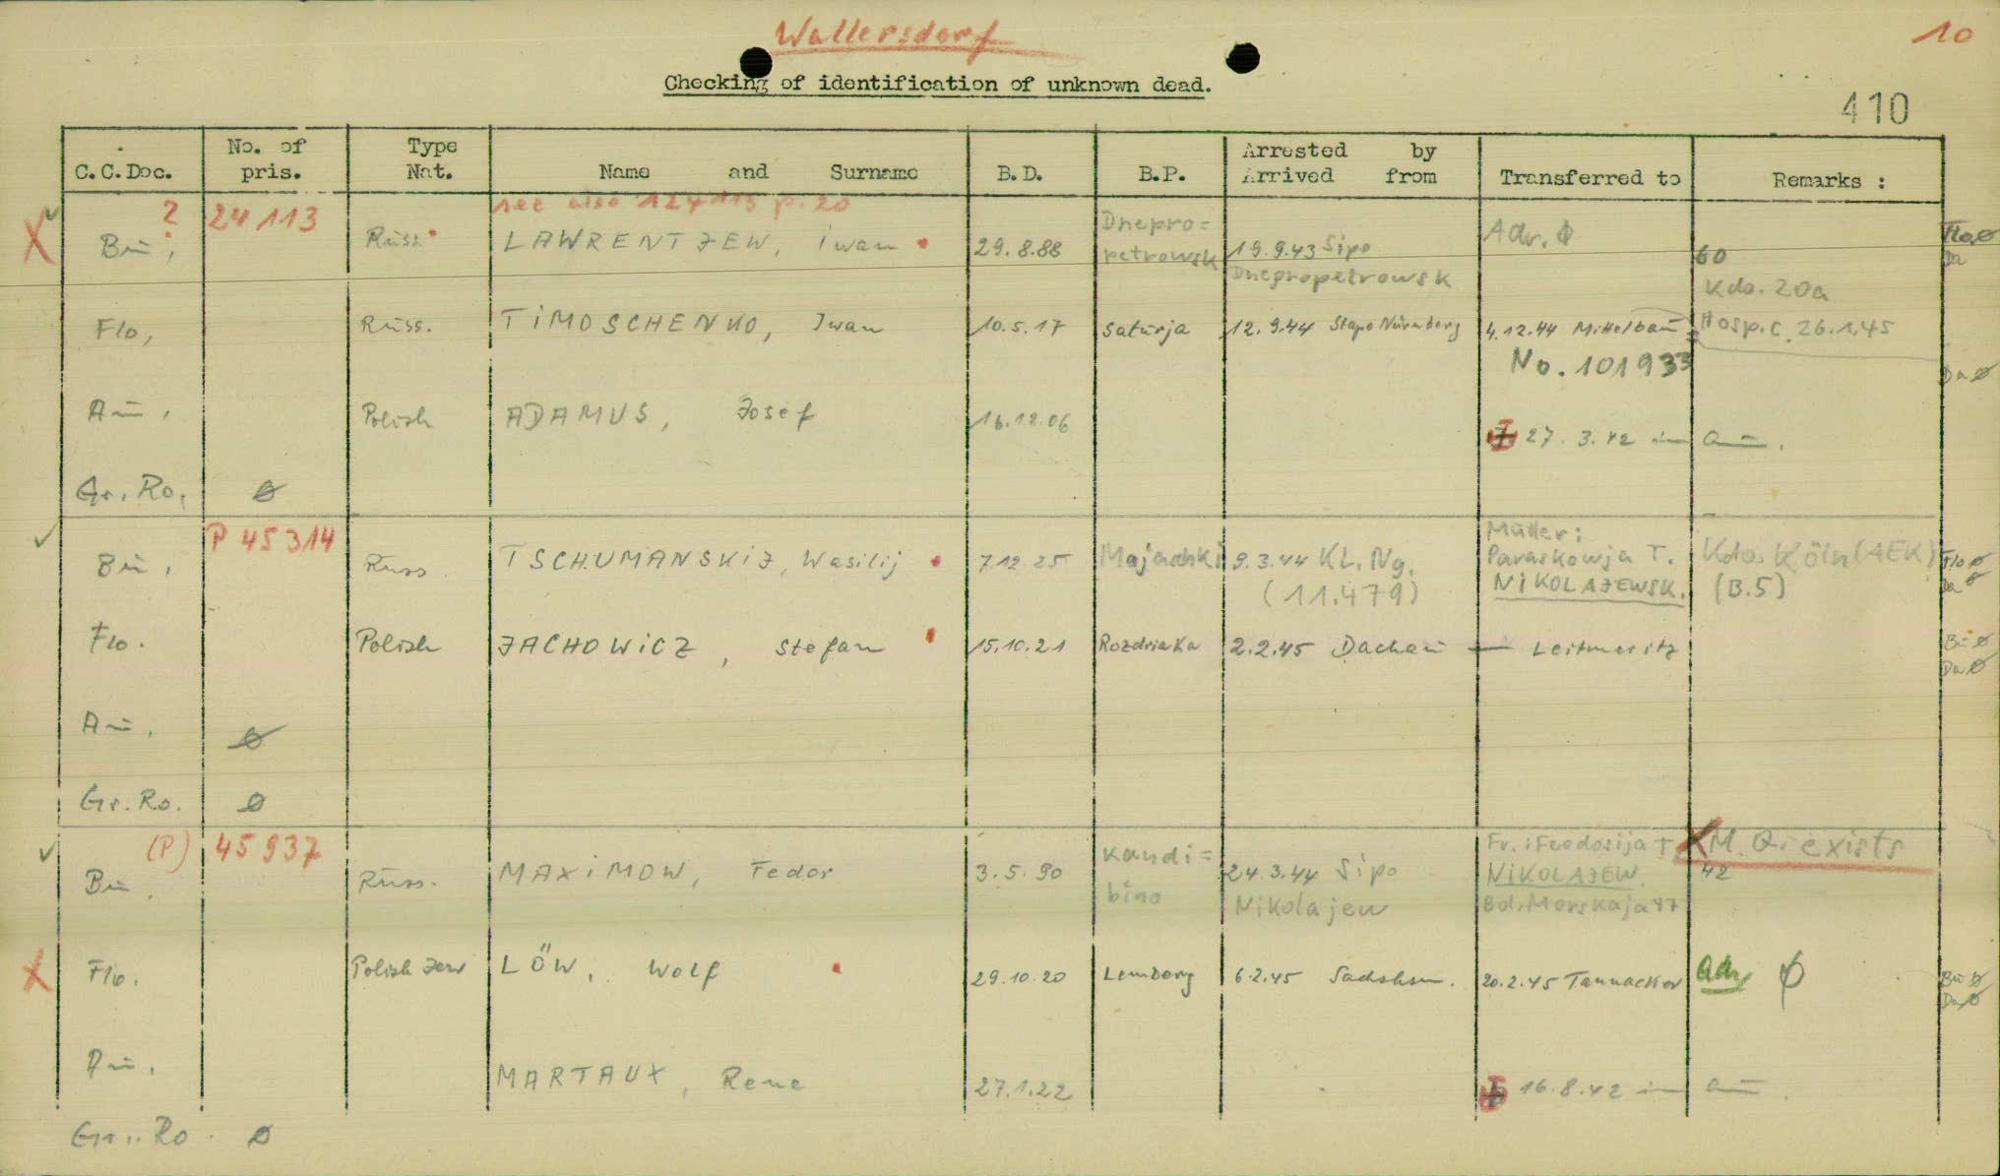 Wallersdorf
10
Checking of identification of unknown dead.
410
C.C.Doc. No. of pris. Type Nat. Name and Surname B.D. B.P. Arrested by Arrived from Transferred to Remarks :
? 24113 see also 124113 p. 20
X Bu, Russ. LAWRENTJEW, Iwan 29.8.88 Dnepro= petrowsk 19.9.43 Sipo Dnepropetrowsk Adr. Ø 60 Flo Ø Da
Kdo. 20a
Flo, Russ. TIMOSCHENKO, Iwan 10.5.17 Saturja 12.9.44 Stapo Nürnberg 4.12.44 Mittelbau Hosp.C. 26.1.45
No. 101933
Da Ø
Au, Polish ADAMUS, Josef 16.12.06 27.3.42 in Au.
Gr. Ro, Ø
P 45314
Bu, Russ. TSCHUMANSKIJ, Wasilij 7.12.25 Majadski 9.3.44 KL. Ng. (11.479) Mutter: Paraskowja T. NIKOLAJEWSK. Kdo. Köln (AEK) (B.5) Flo Ø Da Ø
Flo. Polish JACHOWICZ, Stefan 15.10.21 Rozdrieka 2.2.45 Dachau — Leitmeritz Bu Ø Da Ø
Au, Ø
Gr. Ro. Ø
(P) 45937
Bu. Russ. MAXIMOW, Fedor 3.5.90 Kandi= bino 24.3.44 Sipo Nikolajew Fr.: Feodosija T NIKOLAJEW. Bol. Morskaja 47 X M. Q. exists 42
X Flo. Polish Jew LÖW, Wolf 29.10.20 Lemberg 6.2.45 Sachshsn. 20.2.45 Tannacker Adr Ø Bu Ø Da Ø
Au, MARTAUX, Rene 27.1.22 16.8.42 in Au.
Gr. Ro. Ø